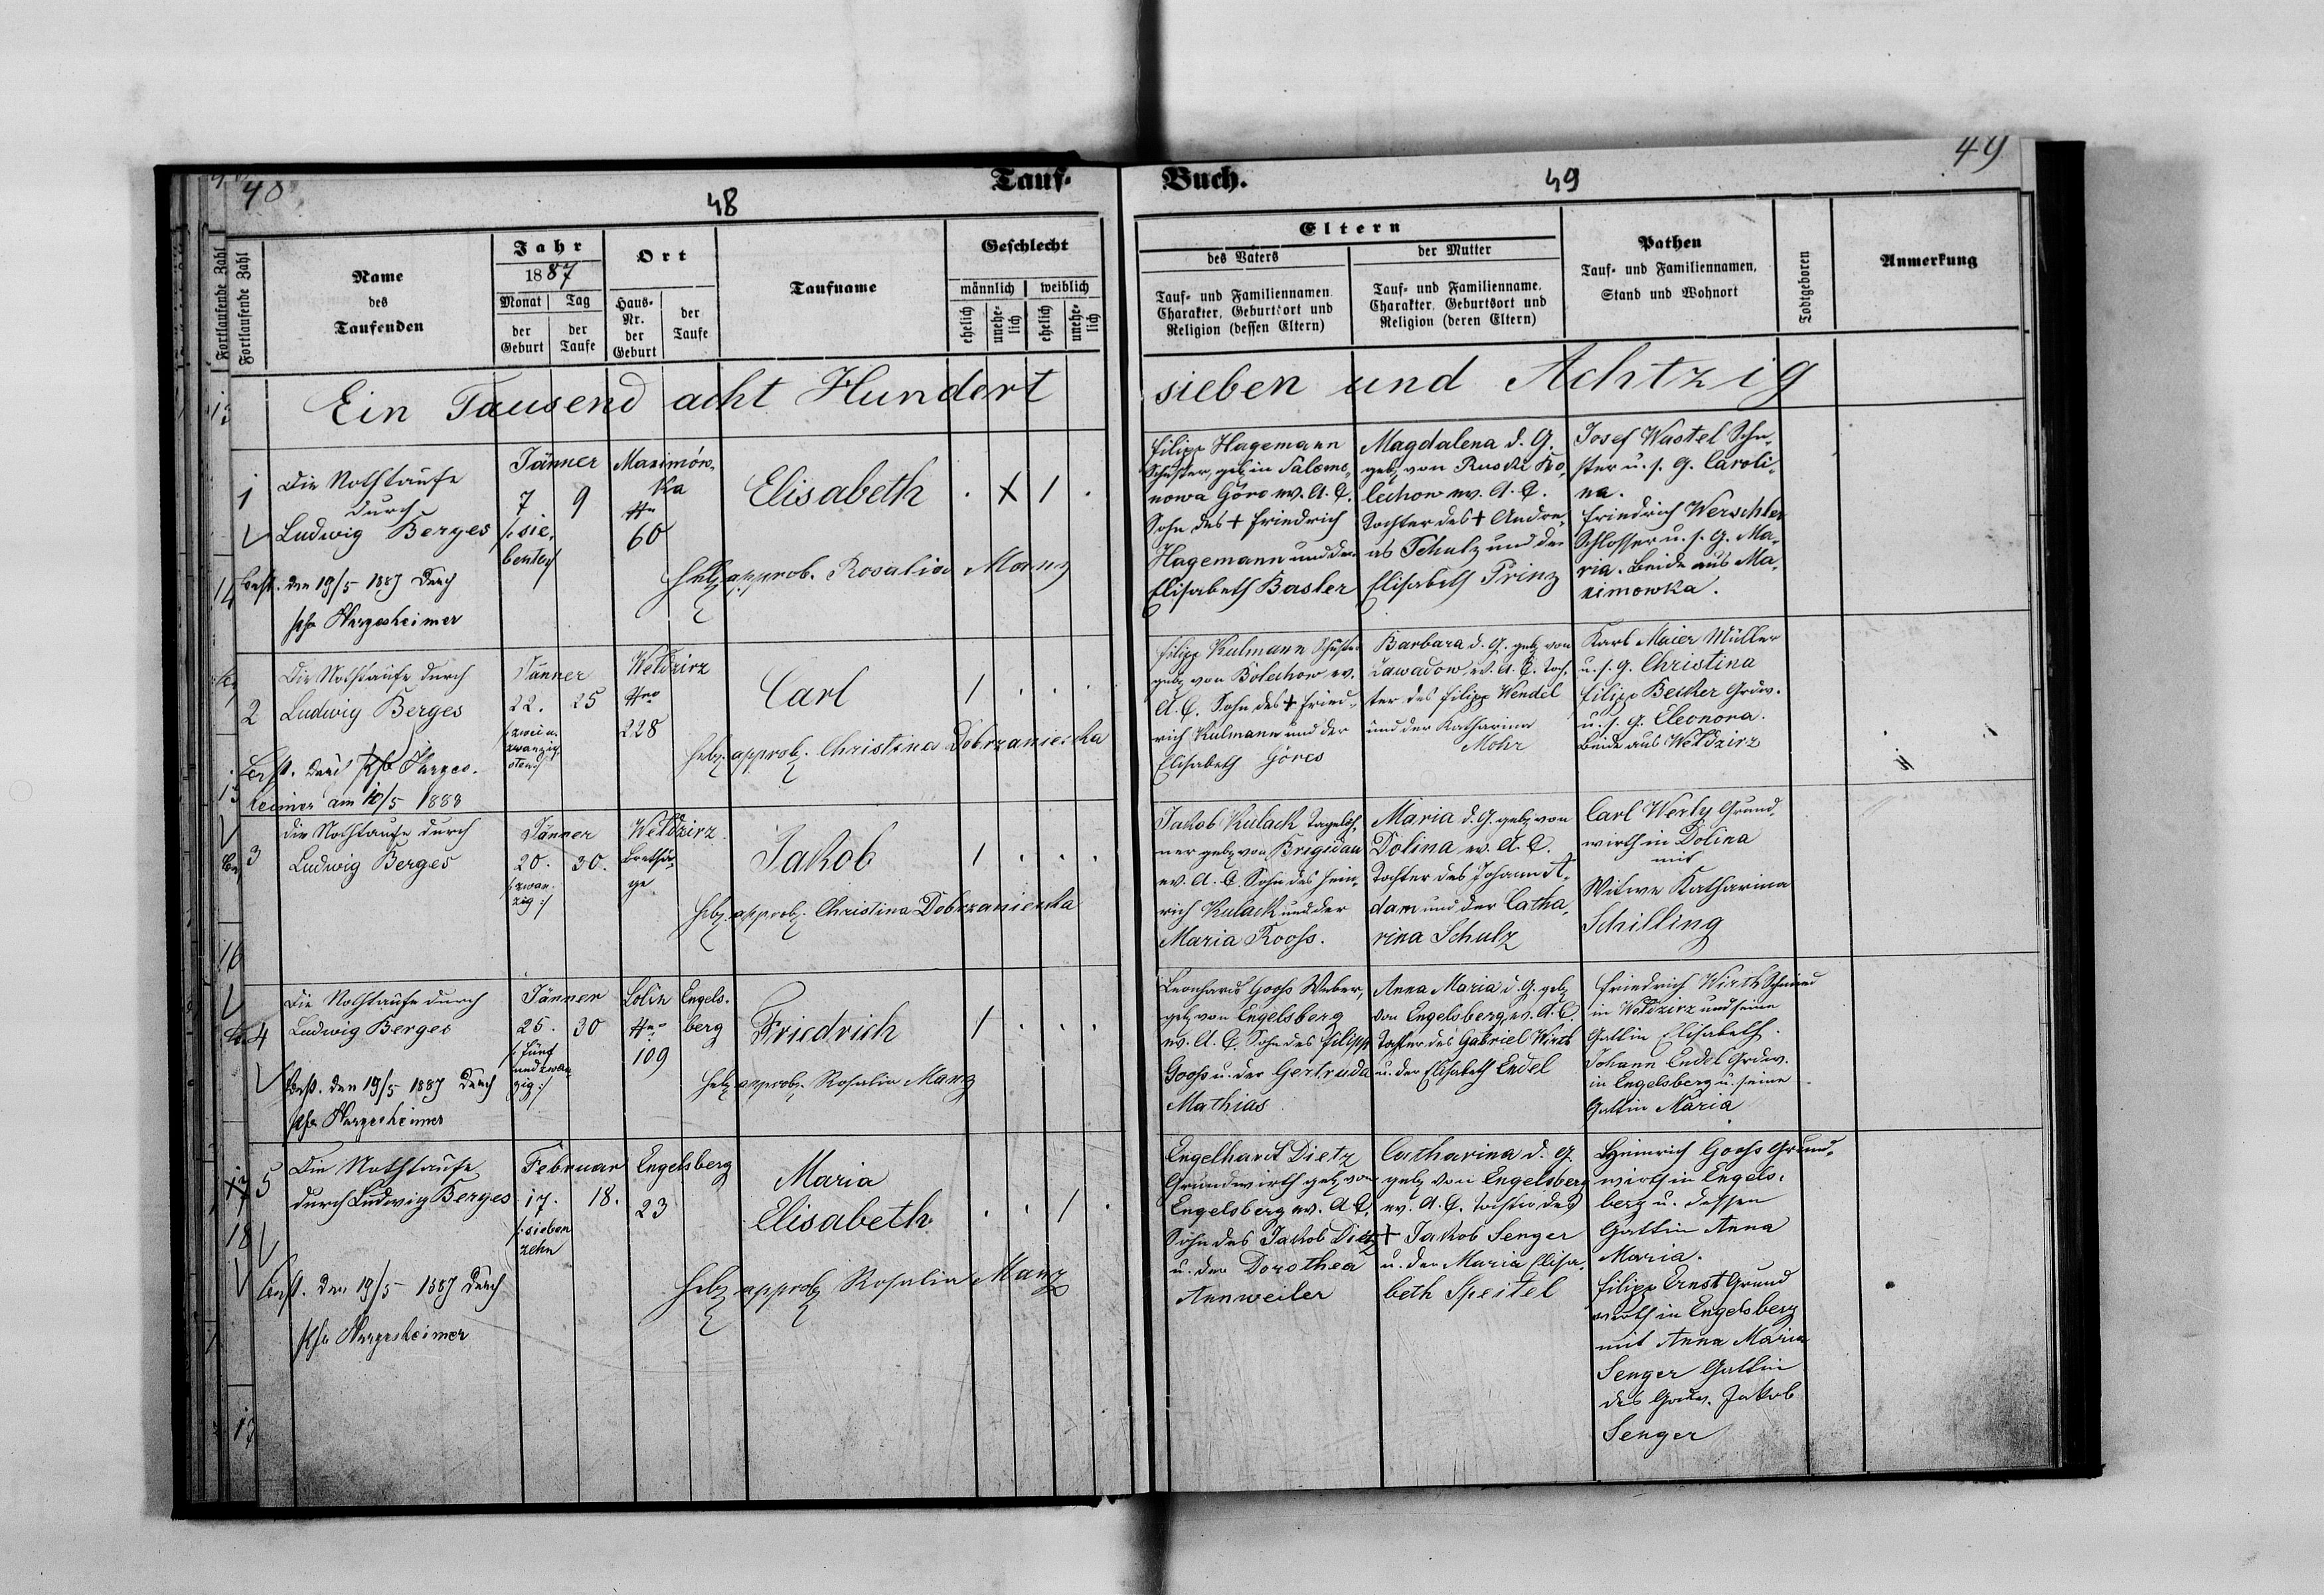 48
48
Tauf-
Buch.
49
49
Fortlaufende Zahl
Fortlaufende Zahl
Name
des
Taufenden
Jahr
1887
Monat
der
Geburt
Tag
der
Taufe
Ort
Haus-
Nr.
der
Geburt
der
Taufe
Taufname
Geschlecht
männlich
weiblich
ehelich
unehe-
lich
ehelich
unehe-
lich
Eltern
des Vaters
Tauf- und Familiennamen,
Charakter, Geburtsort und
Religion (dessen Eltern)
der Mutter
Tauf- und Familienname,
Charakter, Geburtsort und
Religion (deren Eltern)
Pathen
Tauf- und Familiennamen,
Stand und Wohnort
Todtgeboren
Anmerkung
Ein Tausend acht Hundert
sieben und Achtzig
1
Die Nothtaufe
durch
Ludwig Berges
best. den 19/5 1887 durch
Pfr Hargesheimer
Jänner
7
9
/: sie,
benten
Maximów,
ka
Nro
60
Elisabeth
. X 1 .
Heb. approb. Rosalia Manz
Filipp Hagemann
Schuster, geb. in Salamo,
nowa Góra ev. A. C.
Sohn des + Friedrich
Hagemann und der
Elisabeth Basler
Magdalena d. G.
geb. von Ruski Bo,
lechow ev. A. C.
Tochter des + Andre,
as Schulz und der
Elisabeth Prinz
Josef Wastel Schu,
ster u. s. G. Caroli,
na.
Friedrich Werschler
Schlosser u. s. G. Ma,
ria. Beide aus Ma,
ximowka.
2
Die Nothtaufe durch
Ludwig Berges
best. durch Pfr Harges.
heimer am 10/5 1888
Jänner
22.
25
/: zwei u.
zwanzig,
sten :/
Weldzirz
Nro
228
Carl
1 . . .
Heb. approb. Christina Dobrzaniecka
Filipp Kulmann Schuster
geb. von Bolechow ev.
A. C. Sohn des + Fried,
rich Kulmann und der
Elisabeth Göres
Barbara d. G. geb. von
Zawadow, ev. A. C. Toch,
ter des Filipp Wendel
und der Katharina
Mohr
Karl Maier Müller
u. s. G. Christina
Filipp Becker Grdw.
u. s. G. Eleonora.
Beide aus Weldzirz
3
die Nothtaufe durch
Ludwig Berges
Jänner
20.
30.
/: zwan,
zig :/
Weldzirz
Jakob
1 . . .
Heb. approb. Christina Dobrzaniecka
Jakob Kulack Taglöh,
ner geb. von Brigidau
ev. A. C. Sohn des Hein,
rich Kulack und der
Maria Rooss.
Maria d. G. geb. von
Dolina ev. A. C.
Tochter des Johann A,
dam und der Catha,
rina Schulz
Carl Werly Grund,
wirth in Dolina
mit
Witwe Katharina
Schilling
4
Die Nothtaufe durch
Ludwig Berges
best. den 19/5 1887 durch
Pfr Hargesheimer
Jänner
25.
30
/: fünf
und zwan,
zig :/
Lolin
Nro
109
Engels,
berg
Friedrich
1 . . .
Heb. approb. Rosalia Manz
Leonhard Gooss Weber,
geb. von Engelsberg
ev. A. C. Sohn des Filipp
Gooss u. der Gertruda
Mathias
Anna Maria d. G. geb.
von Engelsberg, ev. A. C.
Tochter des Gabriel Wirth
u. der Elisabeth Endel
Friedrich Wirth Schmied
in Weldzirz und seine
Gattin Elisabeth.
Johann Endel Grdw.
in Engelsberg u. seine
Gattin Maria
5
Die Nothtaufe
durch Ludwig Berges
best. den 19/5 1887 durch
Pfr Hargesheimer
Februar
17.
18.
/: sieben
zehn
Engelsberg
23
Maria
Elisabeth
. . 1 .
Heb. approb. Rosalia Manz
Engelhardt Dietz
Grundwirth geb. von
Engelsberg ev. A. C.
Sohn des Jakob Dietz
u. der Dorothea
Annweiler
Catharina d. G.
geb. von Engelsberg
ev. A. C. Tochter des
+ Jakob Senger
u. der Maria Elisa,
beth Speitel
Heinrich Gooss Grund,
wirth in Engels,
berg u. dessen
Gattin Anna
Maria.
Filipp Ernst Grund
wirth in Engelsberg
mit Anna Maria
Senger Gattin
des Grdw. Jakob
Senger